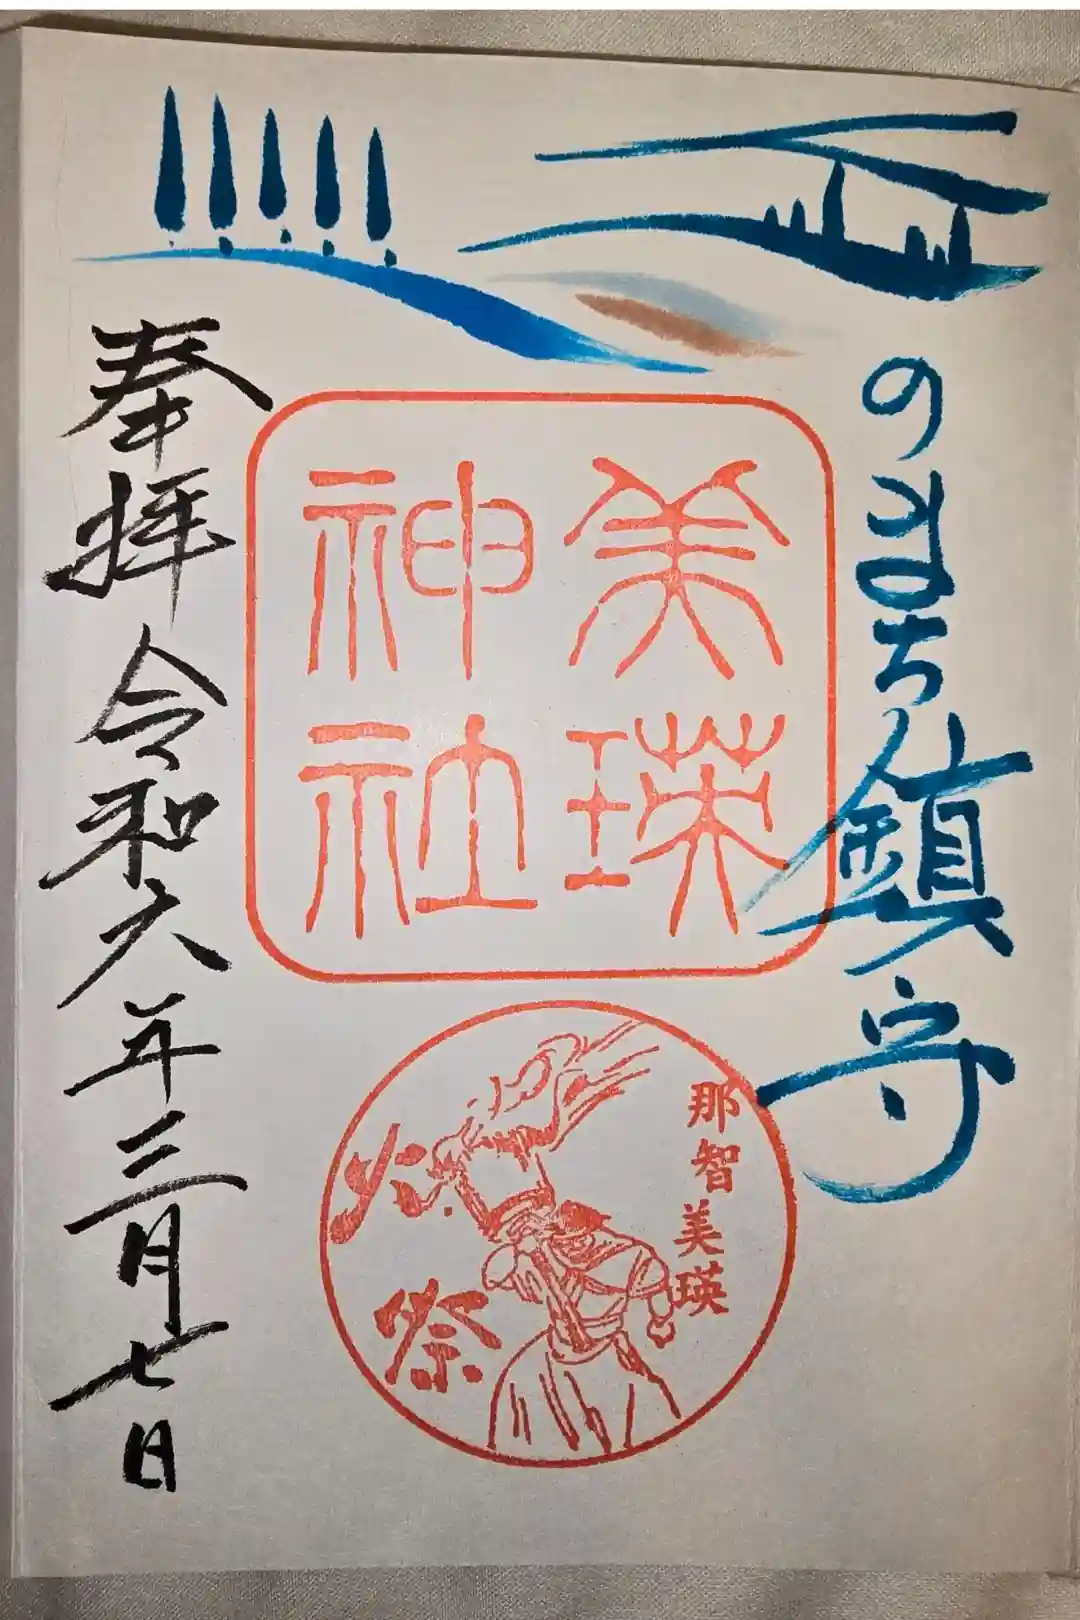 丘のまち鎮守
美瑛
神社
那智美瑛
火祭
奉拝 令和六年三月七日